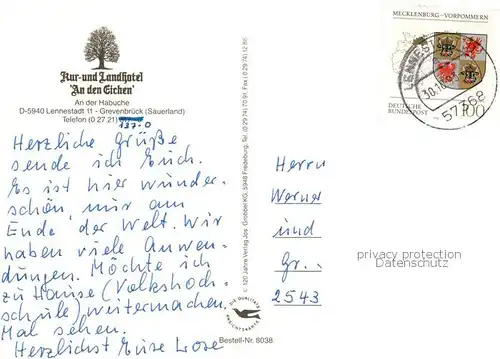 Kur- und Landhotel
'An den Eichen'
An der Habuche
D-5940 Lennestadt 11 - Grevenbrück (Sauerland)
Telefon (0 27 21)
137-0
Herzliche Grüße
sende ich Euch.
Es ist hier wunder-
schön, nur am
Ende der Welt. Wir
haben viele Anwen-
dungen. Möchte ich
zu Hause (Volkshoch-
schule) weitermachen.
Mal sehen.
Herzlichst Eure
© 120 Jahre Verlag Jos. Grobbel KG, 5948 Fredeburg, Tel. (0 29 74) 70 91, Fax (0 29 74) 12 86
DIE QUALIT�äTS
ANSICHTSKARTE
Bestell-Nr. 8038
MECKLENBURG - VORPOMMERN
DEUTSCHE
BUNDESPOST
100
LENNESTADT
30.10.
57368
Herrn
Werner
und
Gr..
2543
privacy protection
Datenschutz